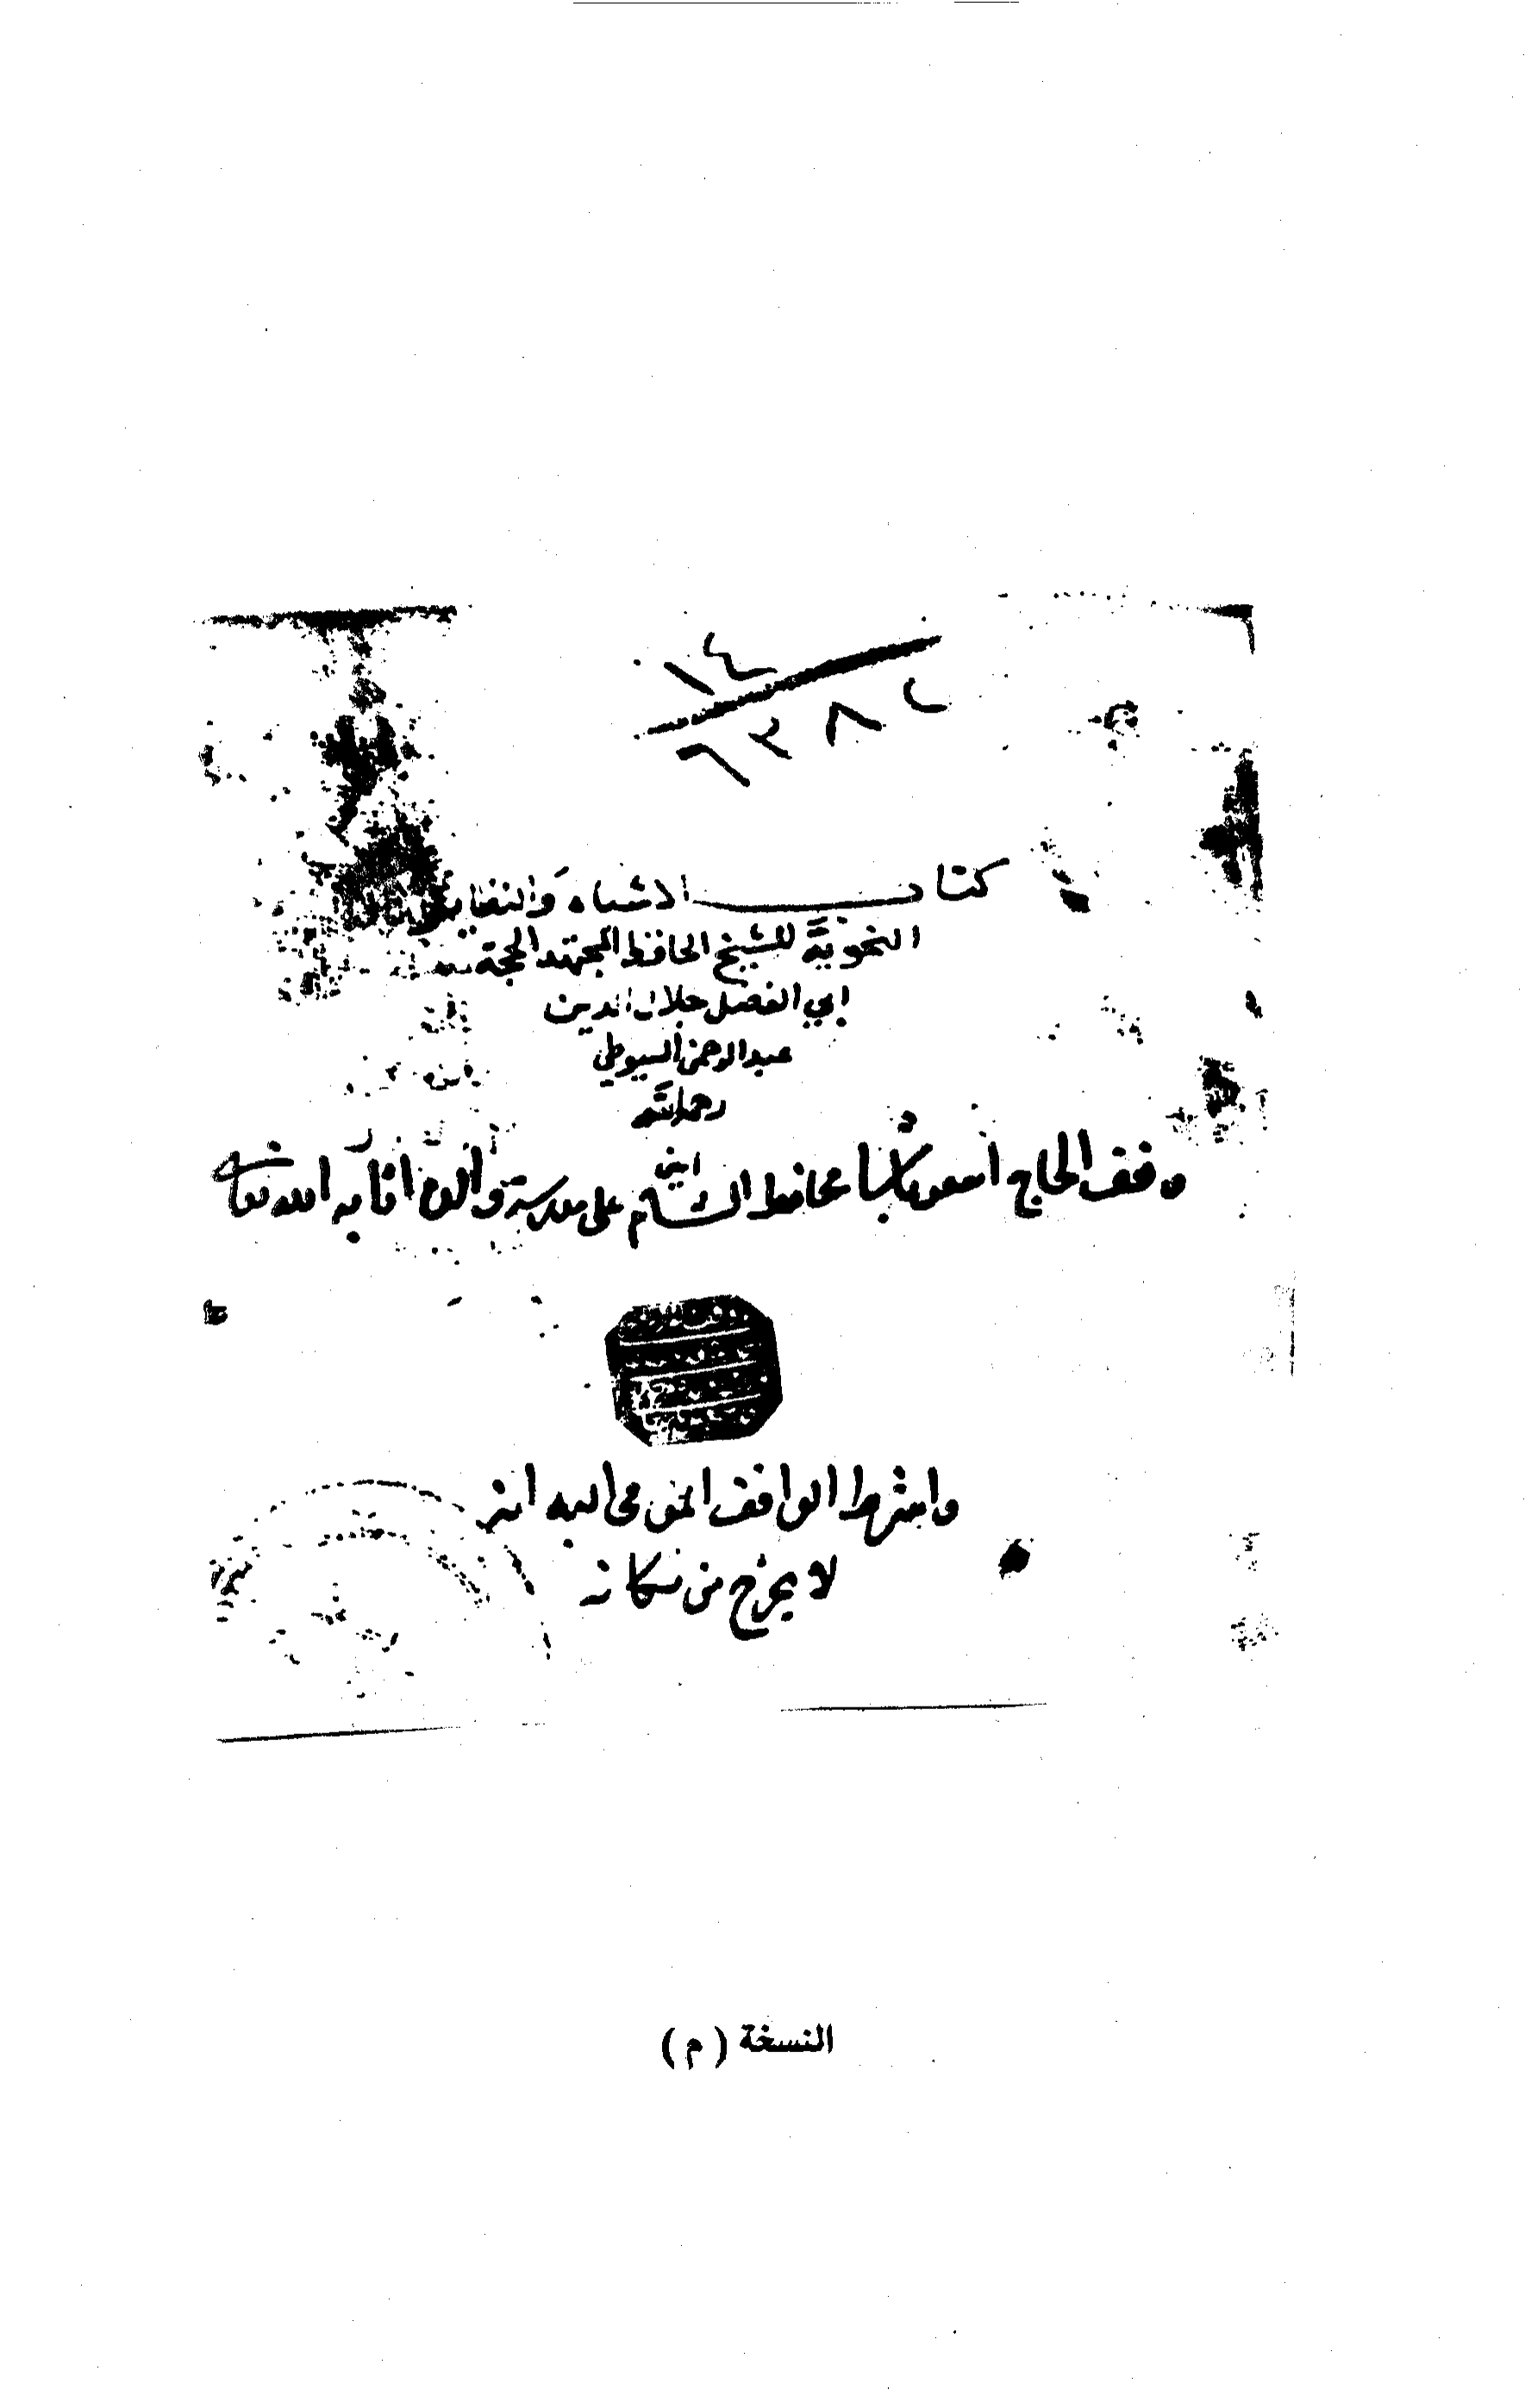 ١٤
٦٣٨٢
كتاب الاشباه والنظاير
النحوية للشيخ الحافظ المجتهد الحجة
ابي الفضل جلال الدين
عبد الرحمن السيوطي
رحمه الله
وقف الحاج اسعد باشا محافظ الشام على مدرسة والده اثابه الله تعالى
واشترط الواقف المومى اليه انه
لا يخرج من مكانه
النسخة (م)